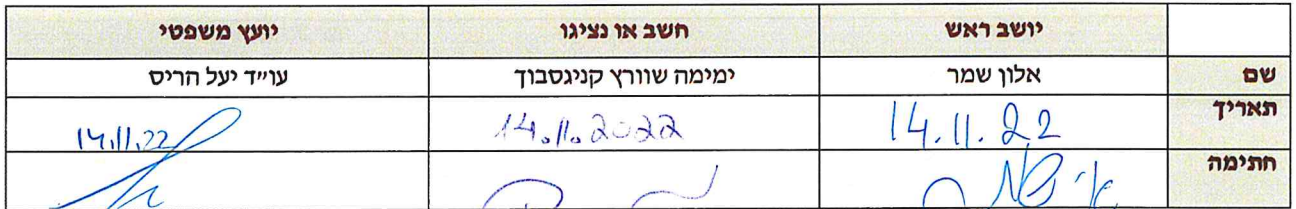 יושב ראש חשב או נציגו יועץ משפטי
שם אלון שמר ימימה שוורץ קניגסבוך עו״ד יעל הריס
תאריך 14.11.22 14.11.2022 14.11.22
חתימה